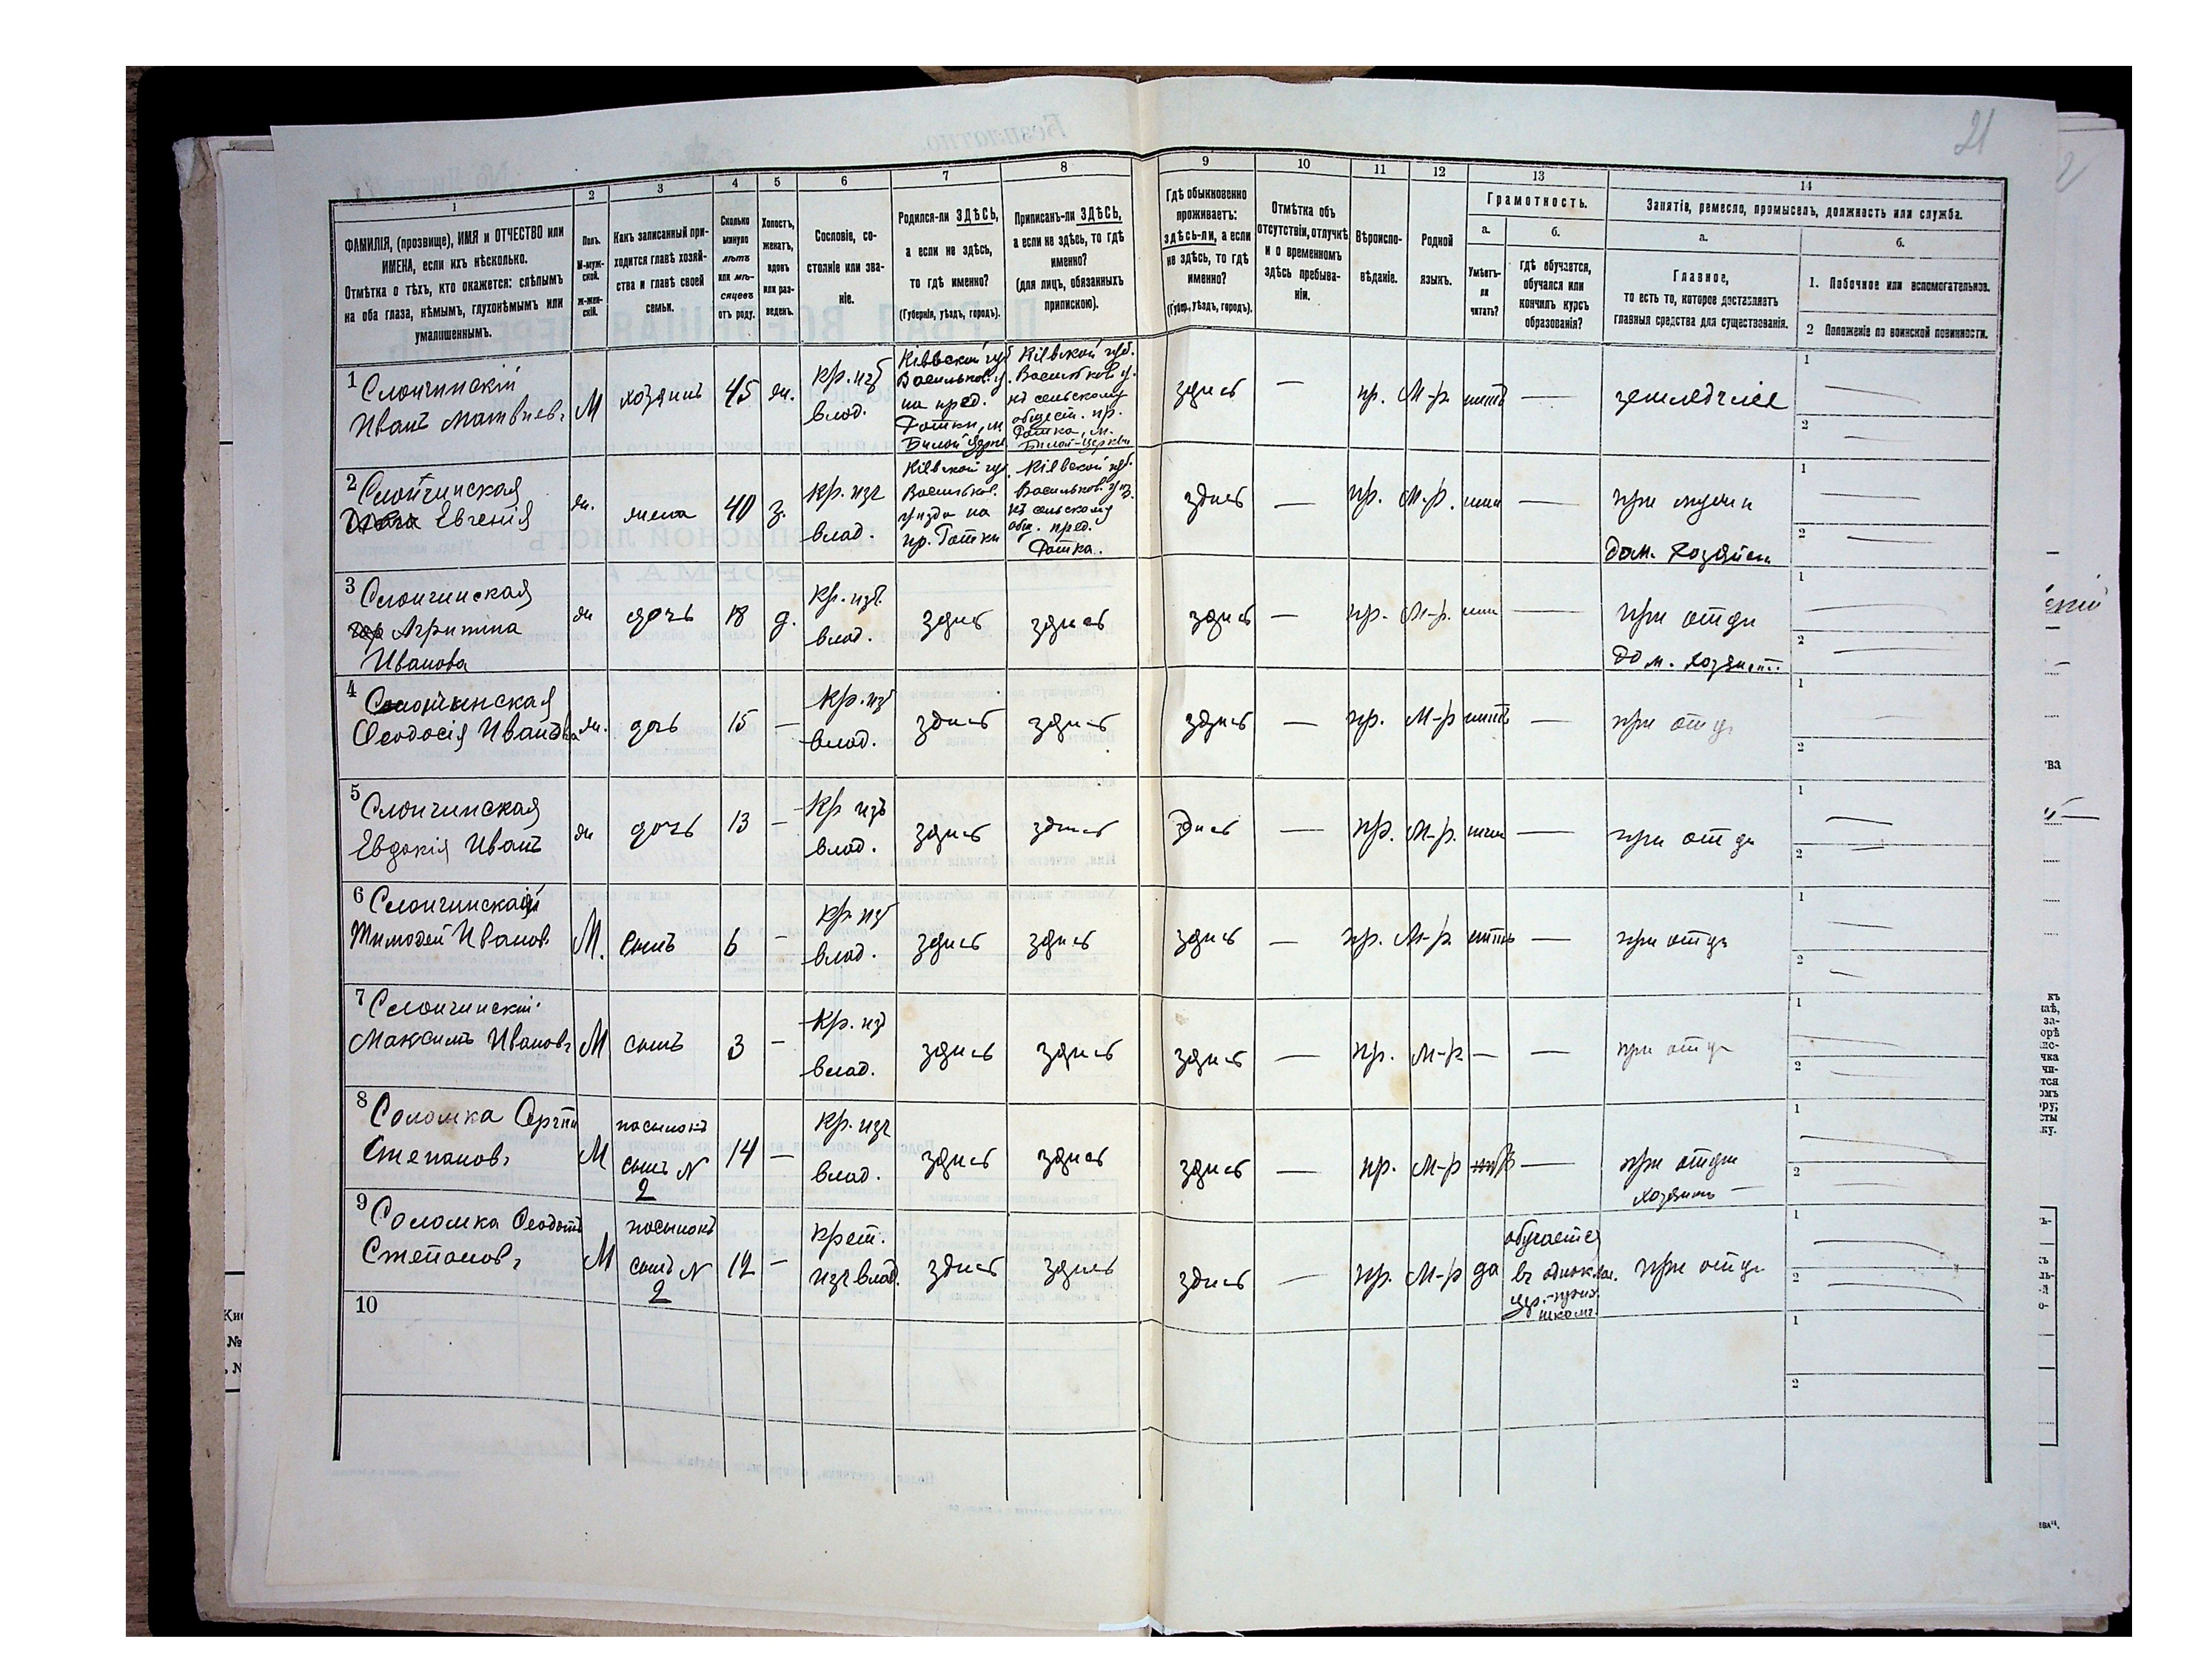 21
1
2
3
4
5
6
7
8
9
10
11
12
13
14
ФАМИЛІЯ, (прозвище), ИМЯ и ОТЧЕСТВО или
ИМЕНА, если ихъ нѣсколько.
Отмѣтка о тѣхъ, кто окажется: слѣпымъ
на оба глаза, нѣмымъ, глухонѣмымъ или
умалишеннымъ.
Полъ.
М-муж-
ской.
ж-жен-
скій.
Какъ записанный при-
ходится главѣ хозяй-
ства и главѣ своей
семьи.
Сколько
минуло
лѣтъ
или мѣ-
сяцевъ
отъ роду.
Холостъ,
женатъ,
вдовъ
или раз-
веденъ.
Сословіе, со-
стояніе или зва-
ніе.
Родился-ли ЗДѢСЬ,
а если не здѣсь,
то гдѣ именно?
(Губернія, уѣздъ, городъ).
Приписанъ-ли ЗДѢСЬ,
а если не здѣсь, то гдѣ
именно?
(для лицъ, обязанныхъ
припискою).
Гдѣ обыкновенно
проживаетъ:
здѣсь-ли, а если
не здѣсь, то гдѣ
именно?
(Губерн., уѣздъ, городъ).
Отмѣтка объ
отсутствіи, отлучкѣ
и о временномъ
здѣсь пребыва-
ніи.
Вѣроиспо-
вѣданіе.
Родной
языкъ.
Грамотность.
а.
Умѣетъ-
ли
читать?
б.
гдѣ обучается,
обучался или
кончилъ курсъ
образованія?
Занятія, ремесло, промыселъ, должность или служба.
а.
Главное,
то есть то, которое доставляетъ
главныя средства для существованія.
б.
1. Побочное или вспомогательное.
2 Положеніе по воинской повинности.
1 Слончинскій
Иванъ Матвіев.
М
хозяинъ
45
ж.
кр. изъ
влад.
Кіевской губ
Васильков. у.
на пред.
Ротки, м
Бѣлой Церкв
Кіевской губ.
Васильков. у.
къ сельскому
общест. пр.
Ротка, м.
Бѣлой-Церкви
здись
—
пр.
М-р.
нитъ
—
земледѣліе
1
2
2 Слончинская
Евгенія
ж.
жена
40
з.
Кр. изъ
влад.
Кіевской губ
Васильков.
уизда на
пр. Ротки
Кіевской губ.
Васильков. уиз.
къ сельскому
общ. пред.
Ротка.
здись
—
пр.
М-р.
—
при мужи
дом. хозяйств
1
2
3 Слончинская
Агрипина
Иванова
ж
дочь
18
д.
Кр. изъ.
влад.
здись
здись
здись
—
пр.
М-р.
—
при отци
дом. хозяйст.
1
2
4 Слончинская
Феодосія Иванова
ж.
дочь
15
—
Кр. изъ
влад.
здись
здись
здись
—
пр.
М-р
нитъ
—
при отци
1
2
5 Слончинская
Евдокія Иван
ж
дочь
13
—
Кр изъ
влад.
здись
здись
здись
—
пр.
М-р.
—
при отци
1
2
6 Слончинскій
Тимофей Иванов.
М.
сынъ
6
—
Кр. изъ
влад.
здись
здись
здись
—
пр.
М-р.
нитъ
—
при отци
1
2
7 Слончинскій
Максимъ Иванов.
М
сынъ
3
—
Кр. изъ
влад.
здись
здись
здись
—
пр.
М-р.
—
—
при отци
1
2
8 Соломка Сергій
Степанов.
М
пасынокъ
сынъ N
2
14
—
Кр. изъ
влад.
здись
здись
здись
—
пр.
М-р
—
при отци
хозяинъ
1
2
9 Соломка Феодотъ
Степанов.
М
пасынокъ
сынъ N
2
12
—
Крест.
изъ влад.
здись
здись
здись
—
пр.
М-р
да
обучается
въ однокл.
цер.-прих.
школѣ.
при отци
1
2
10
1
2